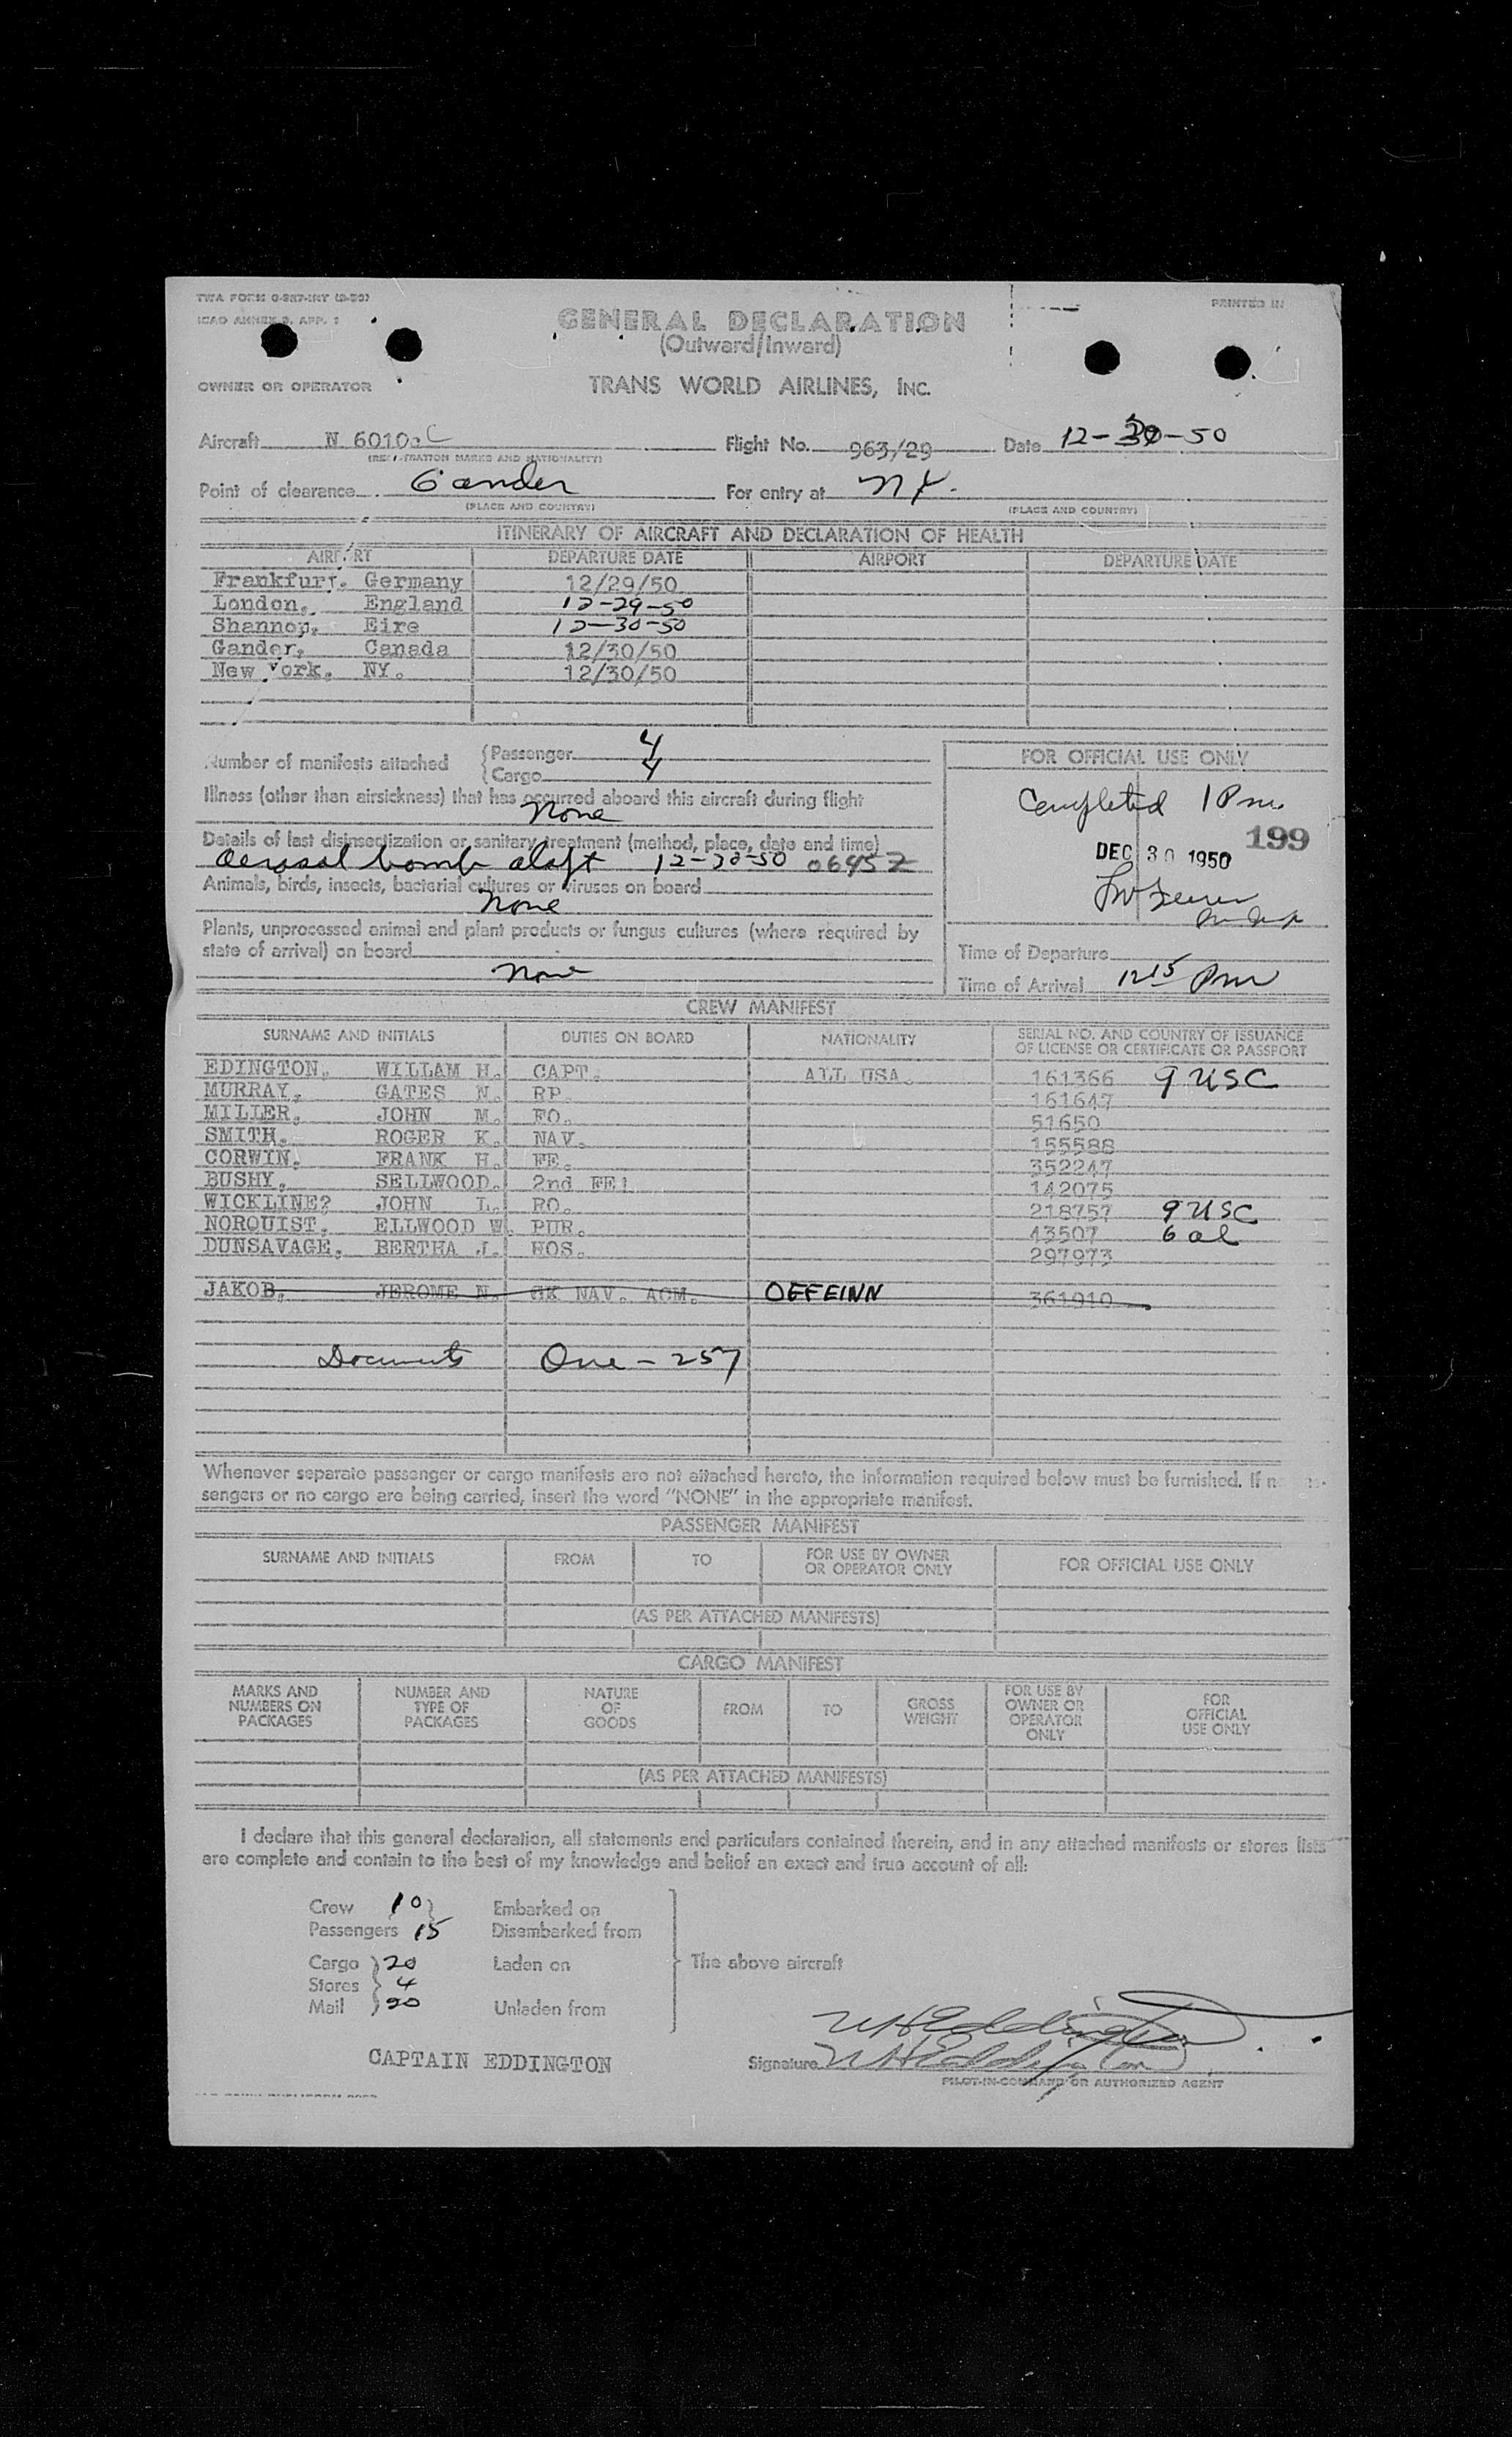 TWA FORM
ICAO ANNEX 9, APP. 1
PRINTED IN
GENERAL DECLARATION
(Outward/Inward)
OWNER OR OPERATOR TRANS WORLD AIRLINES, INC.
Aircraft N 6010 C Flight No. 963/29 Date 12-30-50
(REGISTRATION MARKS AND NATIONALITY)
Point of clearance Gander For entry at NY.
(PLACE AND COUNTRY) (PLACE AND COUNTRY)
ITINERARY OF AIRCRAFT AND DECLARATION OF HEALTH
AIRPORT DEPARTURE DATE AIRPORT DEPARTURE DATE
Frankfurt. Germany 12/29/50
London. England 12-29-50
Shannon. Eire 12-30-50
Gander. Canada 12/30/50
New York. NY. 12/30/50
Number of manifests attached {Passenger 4
{Cargo 4
FOR OFFICIAL USE ONLY
Illness (other than airsickness) that has occurred aboard this aircraft during flight
None
Completed 1 Pm
199
Details of last disinsectization or sanitary treatment (method, place, date and time)
aerosol bomb aloft 12-30-50 0645Z
DEC 30 1950
Animals, birds, insects, bacterial cultures or viruses on board
None
Plants, unprocessed animal and plant products or fungus cultures (where required by
state of arrival) on board
None
Time of Departure
Time of Arrival 12 15 Pm
CREW MANIFEST
SURNAME AND INITIALS DUTIES ON BOARD NATIONALITY SERIAL NO. AND COUNTRY OF ISSUANCE
OF LICENSE OR CERTIFICATE OR PASSPORT
EDINGTON. WILLAM H. CAPT. ALL USA. 161366 9 USC
MURRAY, GATES N. RP. 161647
MILLER. JOHN M. FO. 51650
SMITH. ROGER K. NAV. 155588
CORWIN. FRANK H. FE. 352247
BUSHY. SELLWOOD. 2nd FE! 142075
WICKLINE? JOHN L. RO. 218757 9 USC
NORQUIST. ELLWOOD W. PUR. 43507 6 al
DUNSAVAGE. BERTHA J. HOS. 297973
JAKOB. JEROME N. CK NAV. ACM. OFFEINN 361910
Documents One - 257
Whenever separate passenger or cargo manifests are not attached hereto, the information required below must be furnished. If n
sengers or no cargo are being carried, insert the word "NONE" in the appropriate manifest.
PASSENGER MANIFEST
SURNAME AND INITIALS FROM TO FOR USE BY OWNER OR OPERATOR ONLY FOR OFFICIAL USE ONLY
(AS PER ATTACHED MANIFESTS)
CARGO MANIFEST
MARKS AND NUMBERS ON PACKAGES NUMBER AND TYPE OF PACKAGES NATURE OF GOODS FROM TO GROSS WEIGHT FOR USE BY OWNER OR OPERATOR ONLY FOR OFFICIAL USE ONLY
(AS PER ATTACHED MANIFESTS)
I declare that this general declaration, all statements and particulars contained therein, and in any attached manifests or stores lists
are complete and contain to the best of my knowledge and belief an exact and true account of all:
Crew 10 Embarked on
Passengers 15 Disembarked from
Cargo 20 Laden on The above aircraft
Stores 4
Mail 20 Unladen from
WHEddington
CAPTAIN EDDINGTON Signature WHEddington
PILOT-IN-COMMAND OR AUTHORIZED AGENT